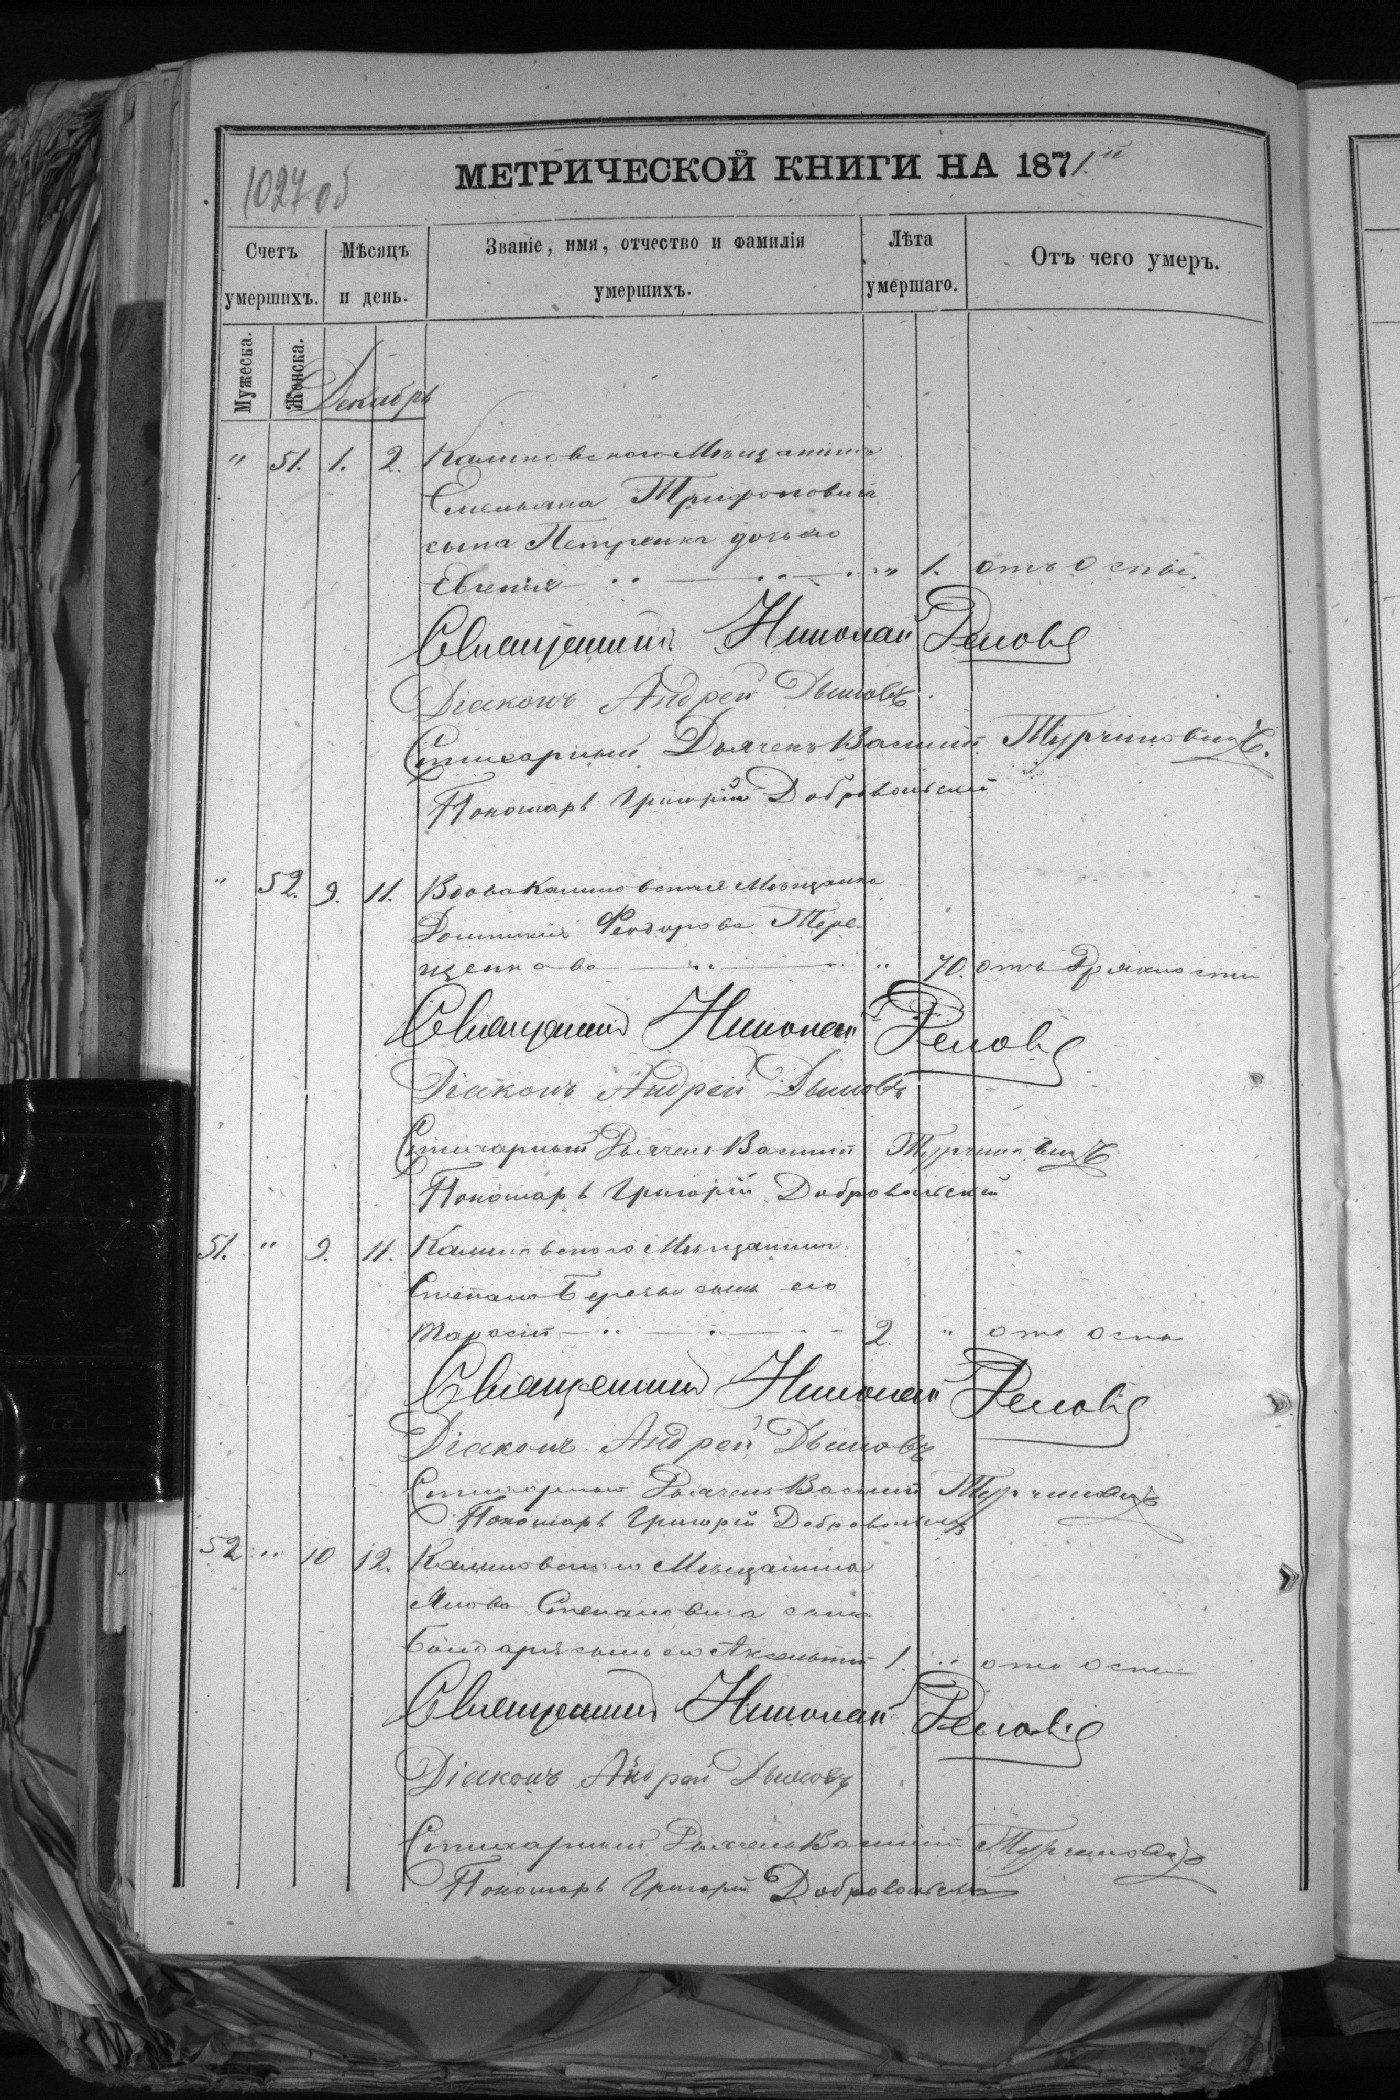 1027 об
МЕТРИЧЕСКОЙ КНИГИ НА 1871.й
Счетъ умершихъ.
Мѣсяцъ и день.
Званіе, имя, отчество и фамилія умершихъ.
Лѣта умершаго.
Отъ чего умеръ.
Мужеска.
Женска.
Декабрь
" 51. 1. 2. Калиновского Мѣщанина
Емельяна Трифоновича
сына Петренка дочь его
Евгенія " 1. отъ Оспы.
Священникъ Николай
Діаконъ Андрей Дымовъ.
Стихарный Дьячекъ Василий Турчиновичъ.
Пономарь Григорій Добровольский
" 52. 9. 11. Вдова Калиновская Мѣщанка
Феодорова Тере-
щенкова " 70. отъ Дряхлости
Священникъ Николай
Діаконъ Андрей Дымовъ
Стихарный Дьячекъ Василий Турчиновичъ
Пономарь Григорій Добровольский
51. " 9. 11. Калиновского Мѣщанина
Степана Березы сынъ его
Тарасій 2. " отъ оспы
Священникъ Николай
Діаконъ Андрей Дымовъ
Стихарный Дьячекъ Василий Турчиновичъ
Пономарь Григорій Добровольский
52 " 10 12. Калиновского Мѣщанина
Якова Степановича сына
Бондаря сынъ его 1. " отъ оспы
Священникъ Николай
Діаконъ Андрей Дымовъ
Стихарный Дьячекъ Василий Турчиновичъ
Пономарь Григорій Добровольский